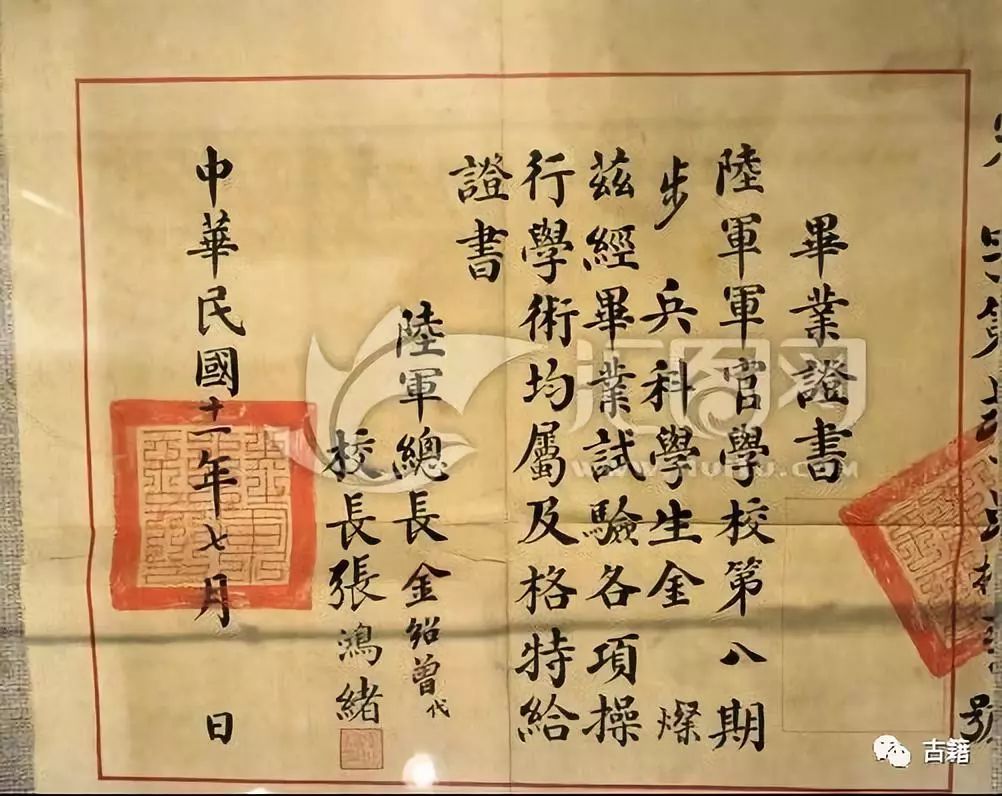 畢業證書
陸軍軍官學校第八期
步兵科學生金燦
茲經畢業試驗各項操
行學術均屬及格特給
證書
陸軍總長金紹曾代
校長張鴻緒
中華民國十一年七月 日
號
汇图网
古籍